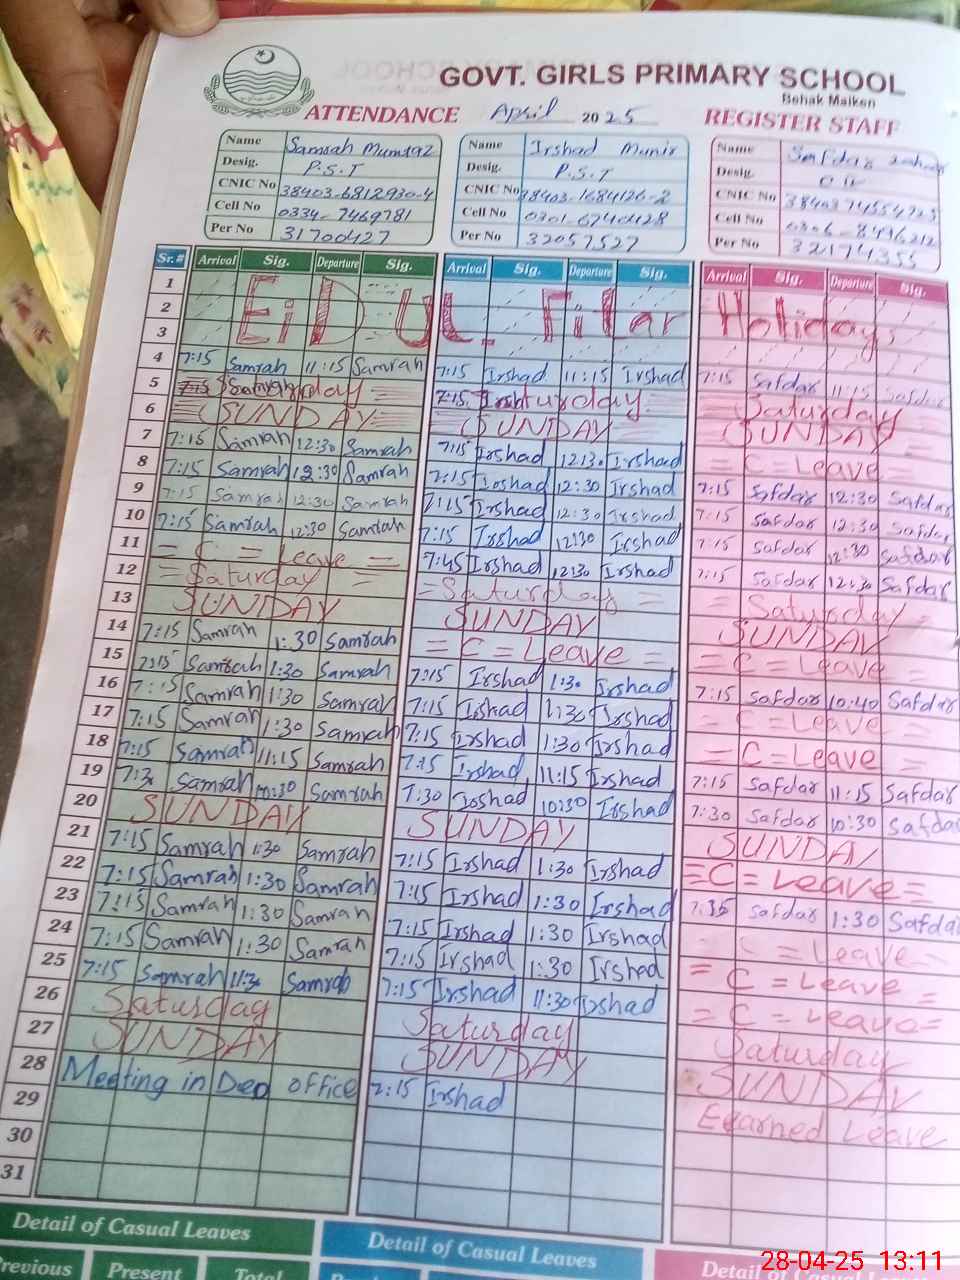 GOVT. GIRLS PRIMARY SCHOOL
Behak Maiken
ATTENDANCE April 2025 REGISTER STAFF
Name Samrah Mumtaz Name Irshad Munir Name Safdar
Desig. P.S.T Desig. P.S.T Desig.
CNIC No 38403-6812930-4 CNIC No 38403-1684126-2 CNIC No
Cell No 0334-7469781 Cell No 0301-6740128 Cell No 0306-8496212
Per No 31700427 Per No 32057527 Per No 32174355
Sr.# Arrival Sig. Departure Sig. Arrival Sig. Departure Sig. Arrival Sig. Departure Sig.
1
2 EiD UL Fitar Holidays
3
4 7:15 Samrah 11:15 Samrah 7:15 Irshad 11:15 Irshad 7:15 Safdar 11:15 Safdar
5 7:15 Saturday 7:15 Saturday = Saturday =
6 SUNDAY SUNDAY SUNDAY
7 7:15 Samrah 12:30 Samrah 7:15 Irshad 12:30 Irshad = C = Leave =
8 7:15 Samrah 12:30 Samrah 7:15 Irshad 12:30 Irshad 7:15 Safdar 12:30 Safdar
9 7:15 Samrah 12:30 Samrah 7:15 Irshad 12:30 Irshad 7:15 Safdar 12:30 Safdar
10 7:15 Samrah 12:30 Samrah 7:15 Irshad 12:30 Irshad 7:15 Safdar 12:30 Safdar
11 = C = Leave = 7:45 Irshad 12:30 Irshad 7:15 Safdar 12:30 Safdar
12 = Saturday = = Saturday = = Saturday =
13 SUNDAY SUNDAY SUNDAY
14 7:15 Samrah 1:30 Samrah = C = Leave = = C = Leave
15 7:15 Samrah 1:30 Samrah 7:15 Irshad 1:30 Irshad 7:15 Safdar 10:40 Safdar
16 7:15 Samrah 1:30 Samrah 7:15 Irshad 1:30 Irshad = C = Leave =
17 7:15 Samrah 1:30 Samrah 7:15 Irshad 1:30 Irshad = C = Leave =
18 7:15 Samrah 11:15 Samrah 7:15 Irshad 11:15 Irshad 7:15 Safdar 11:15 Safdar
19 7:30 Samrah 10:30 Samrah 7:30 Irshad 10:30 Irshad 7:30 Safdar 10:30 Safdar
20 SUNDAY SUNDAY SUNDAY
21 7:15 Samrah 1:30 Samrah 7:15 Irshad 1:30 Irshad = C = Leave =
22 7:15 Samrah 1:30 Samrah 7:15 Irshad 1:30 Irshad 7:35 Safdar 1:30 Safdar
23 7:15 Samrah 1:30 Samrah 7:15 Irshad 1:30 Irshad = C = Leave =
24 7:15 Samrah 1:30 Samrah 7:15 Irshad 1:30 Irshad = C = Leave =
25 7:15 Samrah 11:30 Samrah 7:15 Irshad 11:30 Irshad = C = Leave =
26 Saturday Saturday Saturday
27 SUNDAY SUNDAY SUNDAY
28 Meeting in Deo office 7:15 Irshad Earned Leave
29
30
31
Detail of Casual Leaves Detail of Casual Leaves Detail of
Previous Present Total
28-04-25 13:11